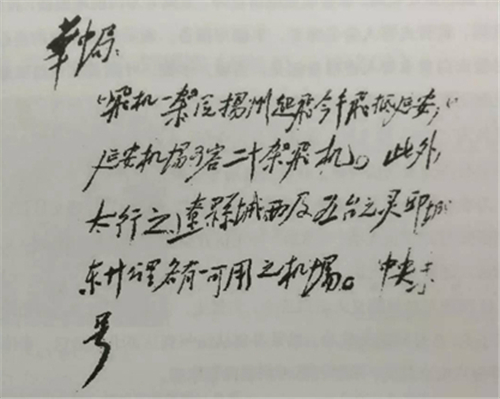 華中局：
“飛机一架從揚州起飛今午飛抵延安，”
延安机場可容二十架飛机。此外，
太行之遼縣城西及五台之灵邱城
东廿里各有一可用之机場。中央
号